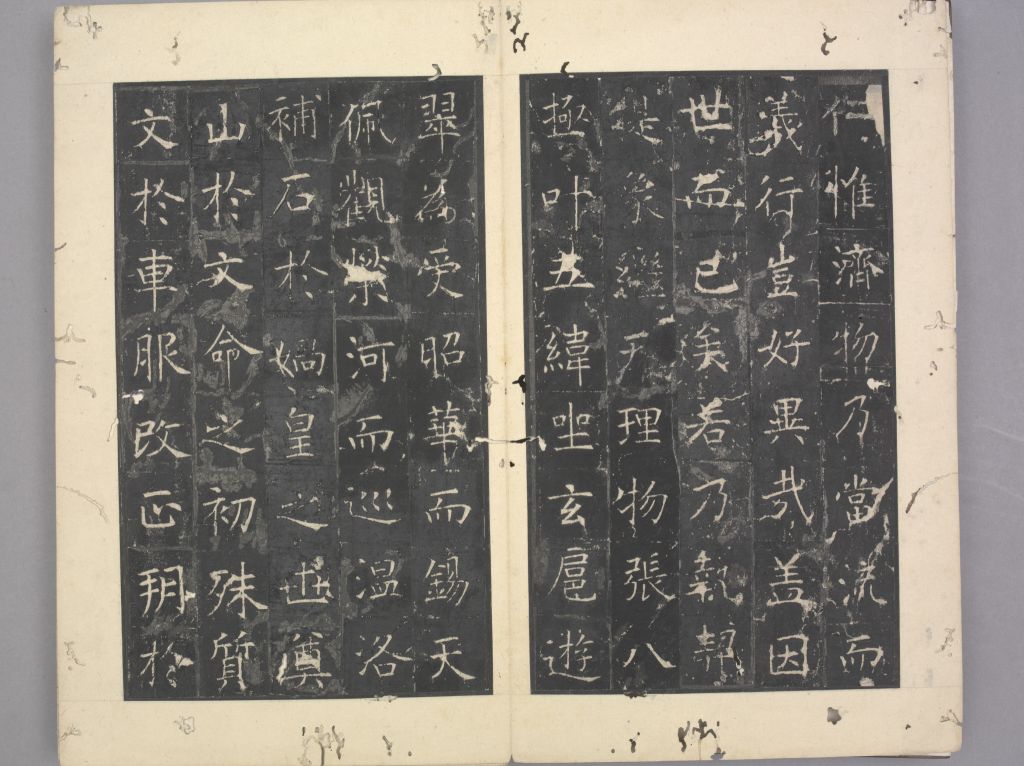 仁惟濟物乃當流而
義行豈好異哉盖因
世而已矣若乃執契
提象繼天理物張八
極叶五緯坐玄扈遊
翠為受昭華而錫天
佩觀滎河而巡温洛
補石於媧皇之世奠
山於文命之初殊質
文於車服改正朔於